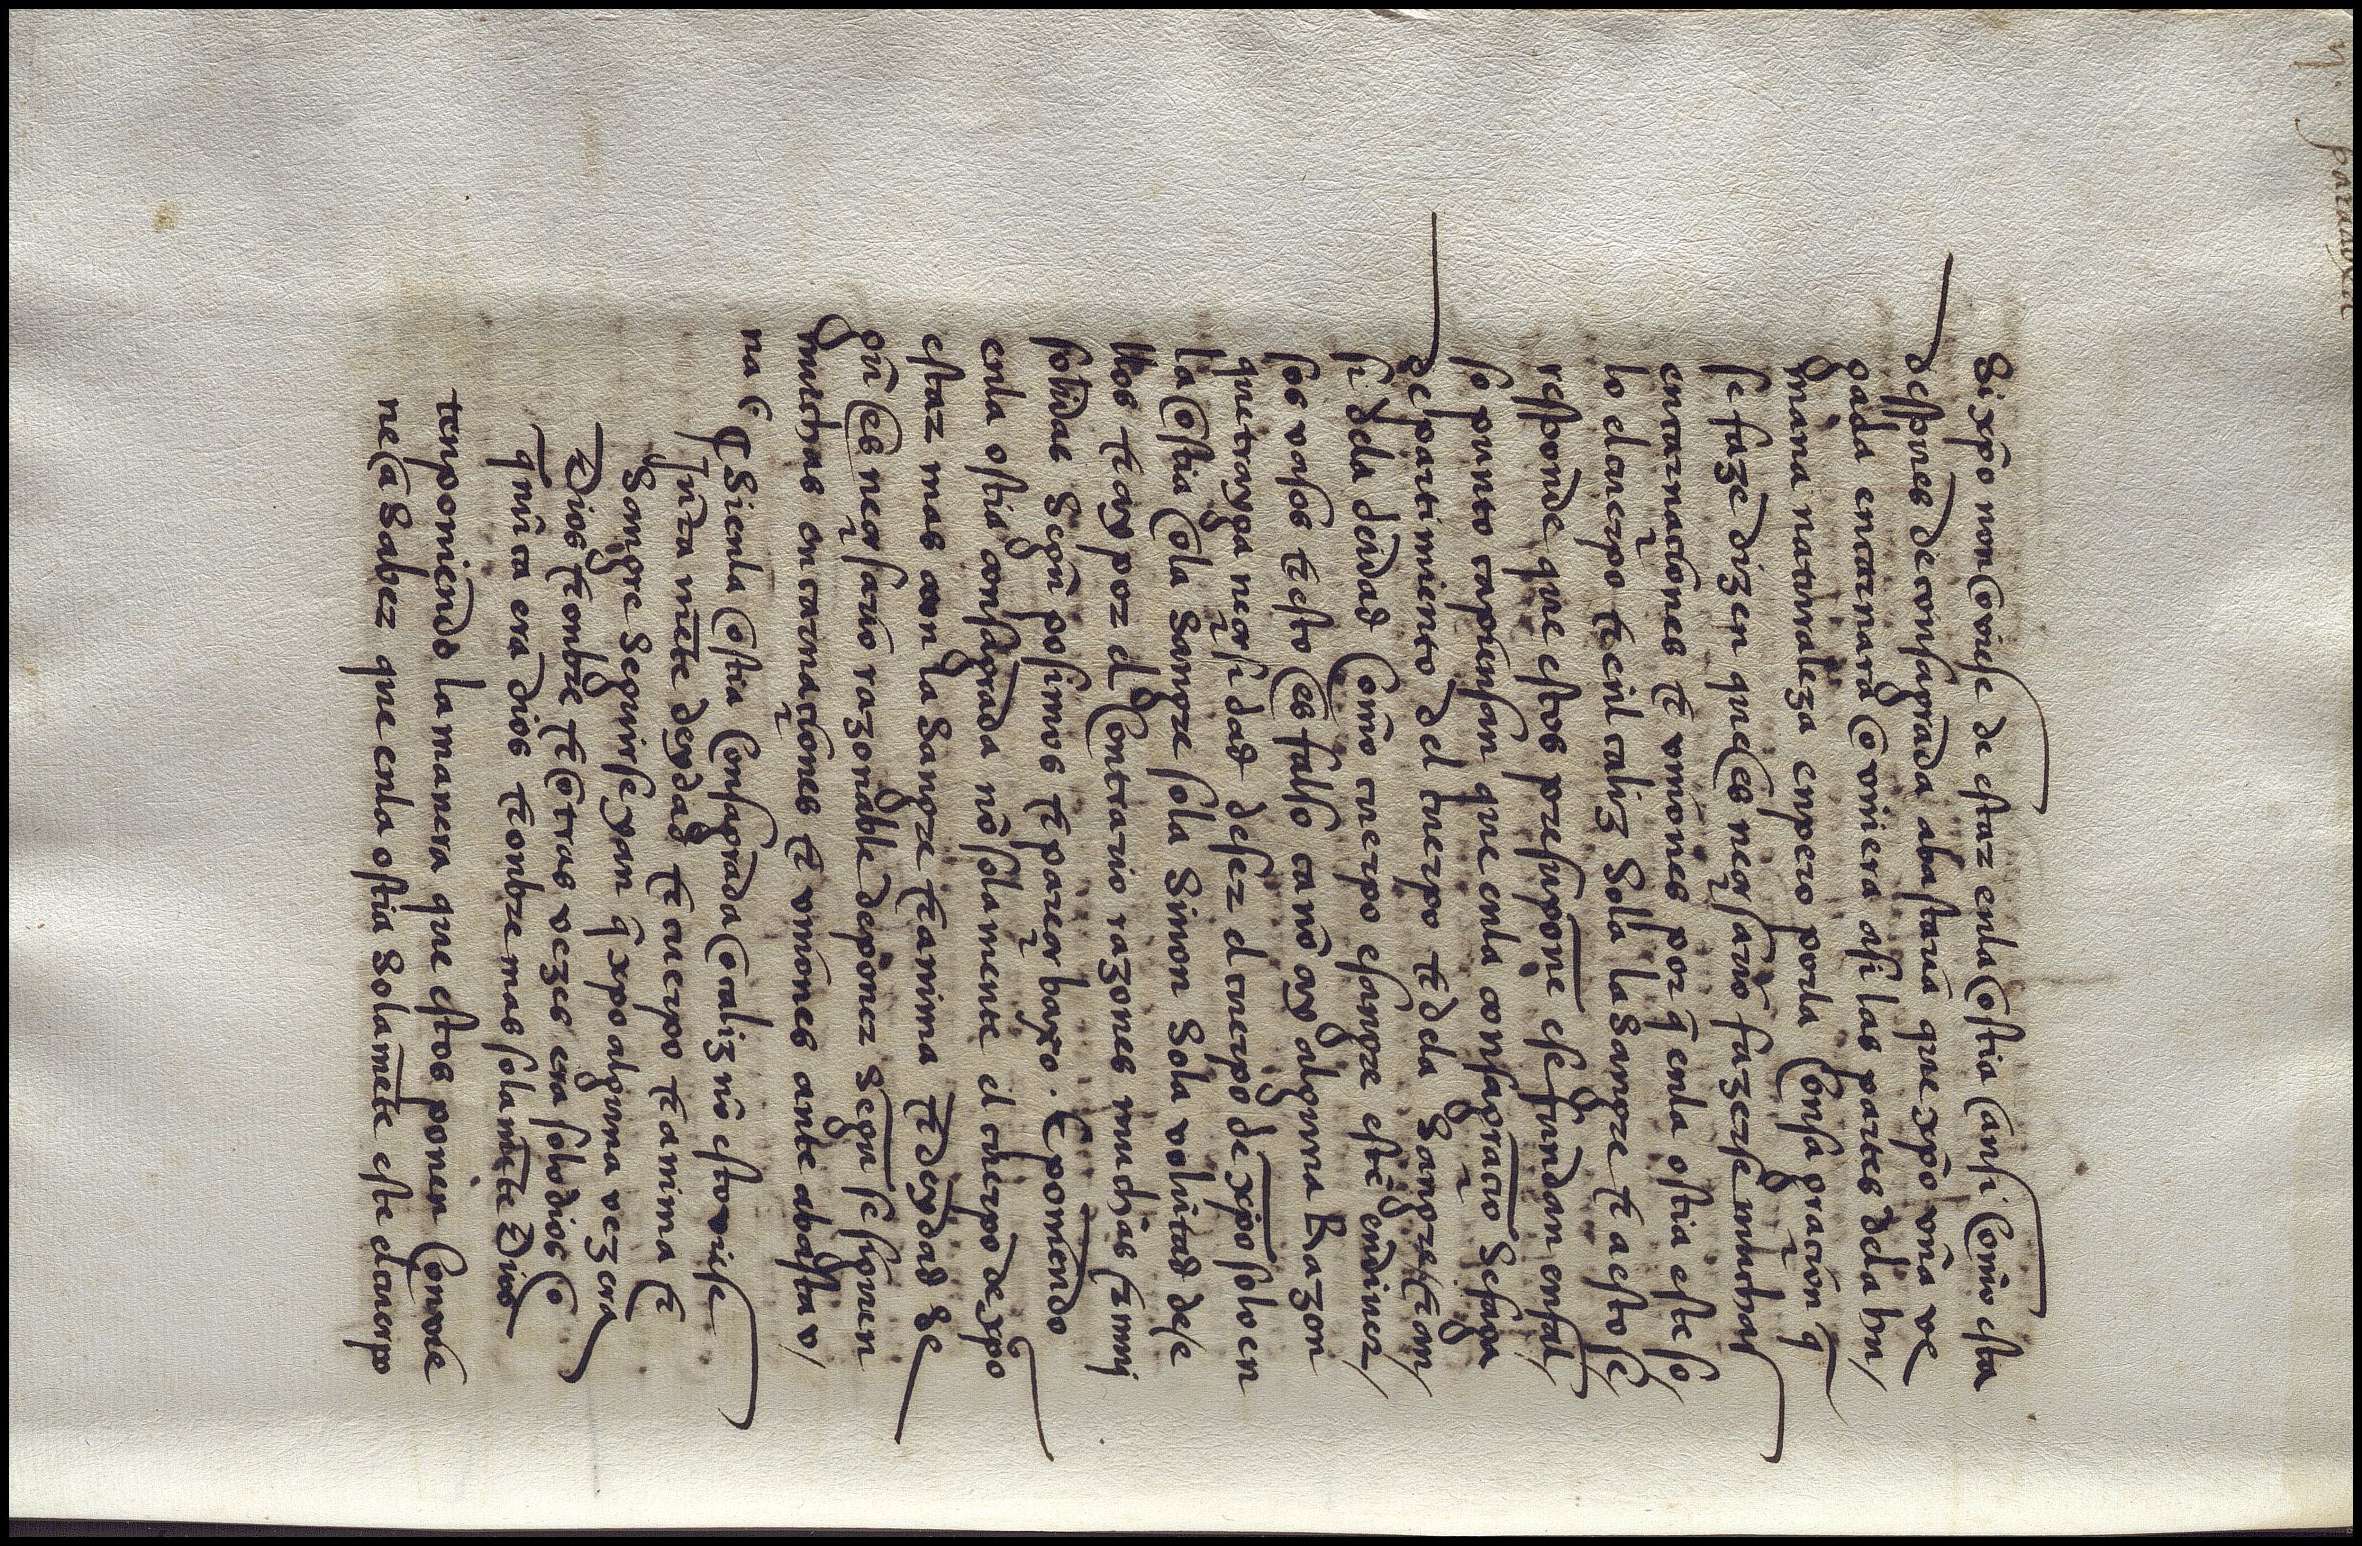 si xp̃o non oviese de estar en la ostia ansi com̃o esta
despues de consagrada abastaria que xp̃o vña ve
gada encarnara o vniera asi las partes dela hu/
mana naturaleza enpero por la consagraçion q̃
se faze dizen que es neçesario fazerse muchas
encarnaçiones τ vniones por q̃ en la ostia este so
lo el cuerpo τ en l caliz sola la sangre τ a esto se
responde que estos presuponẽ τ se fundan en fal/
so punto ca piensan que en la consagraçiõ se faga
departimiento del cuerpo τ dela sangre τ an/
si dela deidad com̃o cuerpo τ sangre estẽ en diuer/
sos vasos τ esto es falso ca nõ ay alguna Razon
que trayga neçesidad de ser el cuerpo de xp̃o solo en
la ostia o la sangre sola sinon sola volũtad de
llos τ ay por el contrario razones muchas τ muy
solidas segũ posimos τ pareçer baxo. E poniendo
en la ostia consagrada nõ solamente el cuerpo de xp̃o
estar mas con la sangre τ anima τ deydad se
gũ es neçesario razonable de poner segũ se siguen
muchas encarnaçiones τ vniones ante abasta v/
na
¶ Si en la ostia consagrada o caliz nõ estouiese
junta mẽte deydad τ cuerpo τ anima τ
sangre seguirse yan q̃ xpo alguna vez era
Dios τ onbre τ otras vezes era solo dios o
q̃ nũca era dios τ onbre mas solamẽte Dios
τ enponiendo la manera que estos ponen convie
ne a saber que en la ostia solamẽte este el cuerpo